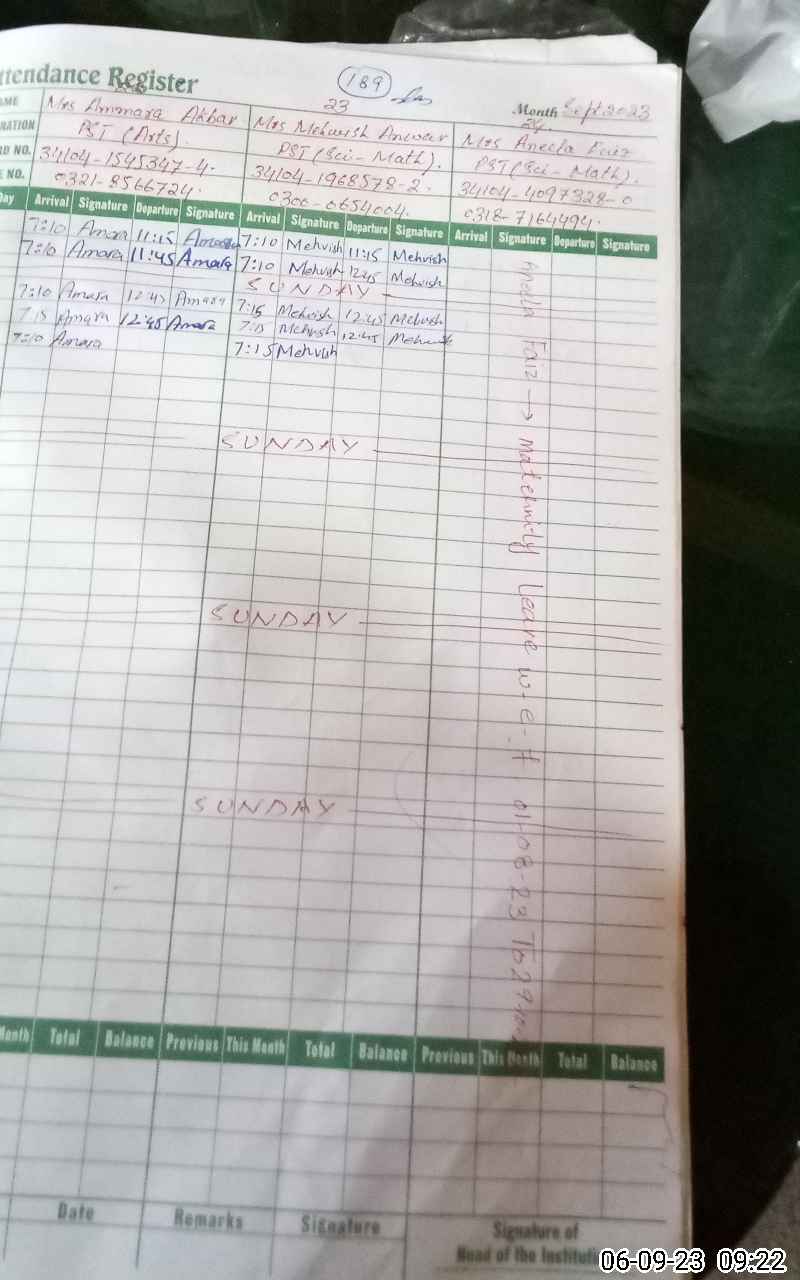 ttendance Register
189
Month Sept 2023
23
24
AME Mrs Ammara Akbar Mrs Mehwish Anwar Mrs Aneela Faiz
NATION PST (Arts). PST (Sci - Math). PST (Sci - Math).
RD NO. 34104-1545347-4. 34104-1968578-2. 34104-4097328-0
E NO. 0321-8566724. 0300-0654004. 0318-7164494.
Day Arrival Signature Departure Signature Arrival Signature Departure Signature Arrival Signature Departure Signature
7:10 Amara 11:15 7:10 Mehvish 11:15 Mehvish
7:10 Amara 11:45 Amara 7:10 Mehvish 12:45 Mehvish
SUNDAY
7:10 Amara 12:45 Amara 7:15 Mehvish 12:45 Mehvish
7:15 Amara 12:45 Amara 7:15 Mehvish 12:45 Mehvish
7:10 Amara 7:15 Mehvish
SUNDAY
SUNDAY
SUNDAY
Aneela Faiz → Maternity Leave w-e-f 01-08-23 To 29
Month Total Balance Previous This Month Total Balance Previous This Month Total Balance
Date Remarks Signature Signature of
Head of the Instituti
06-09-23 09:22